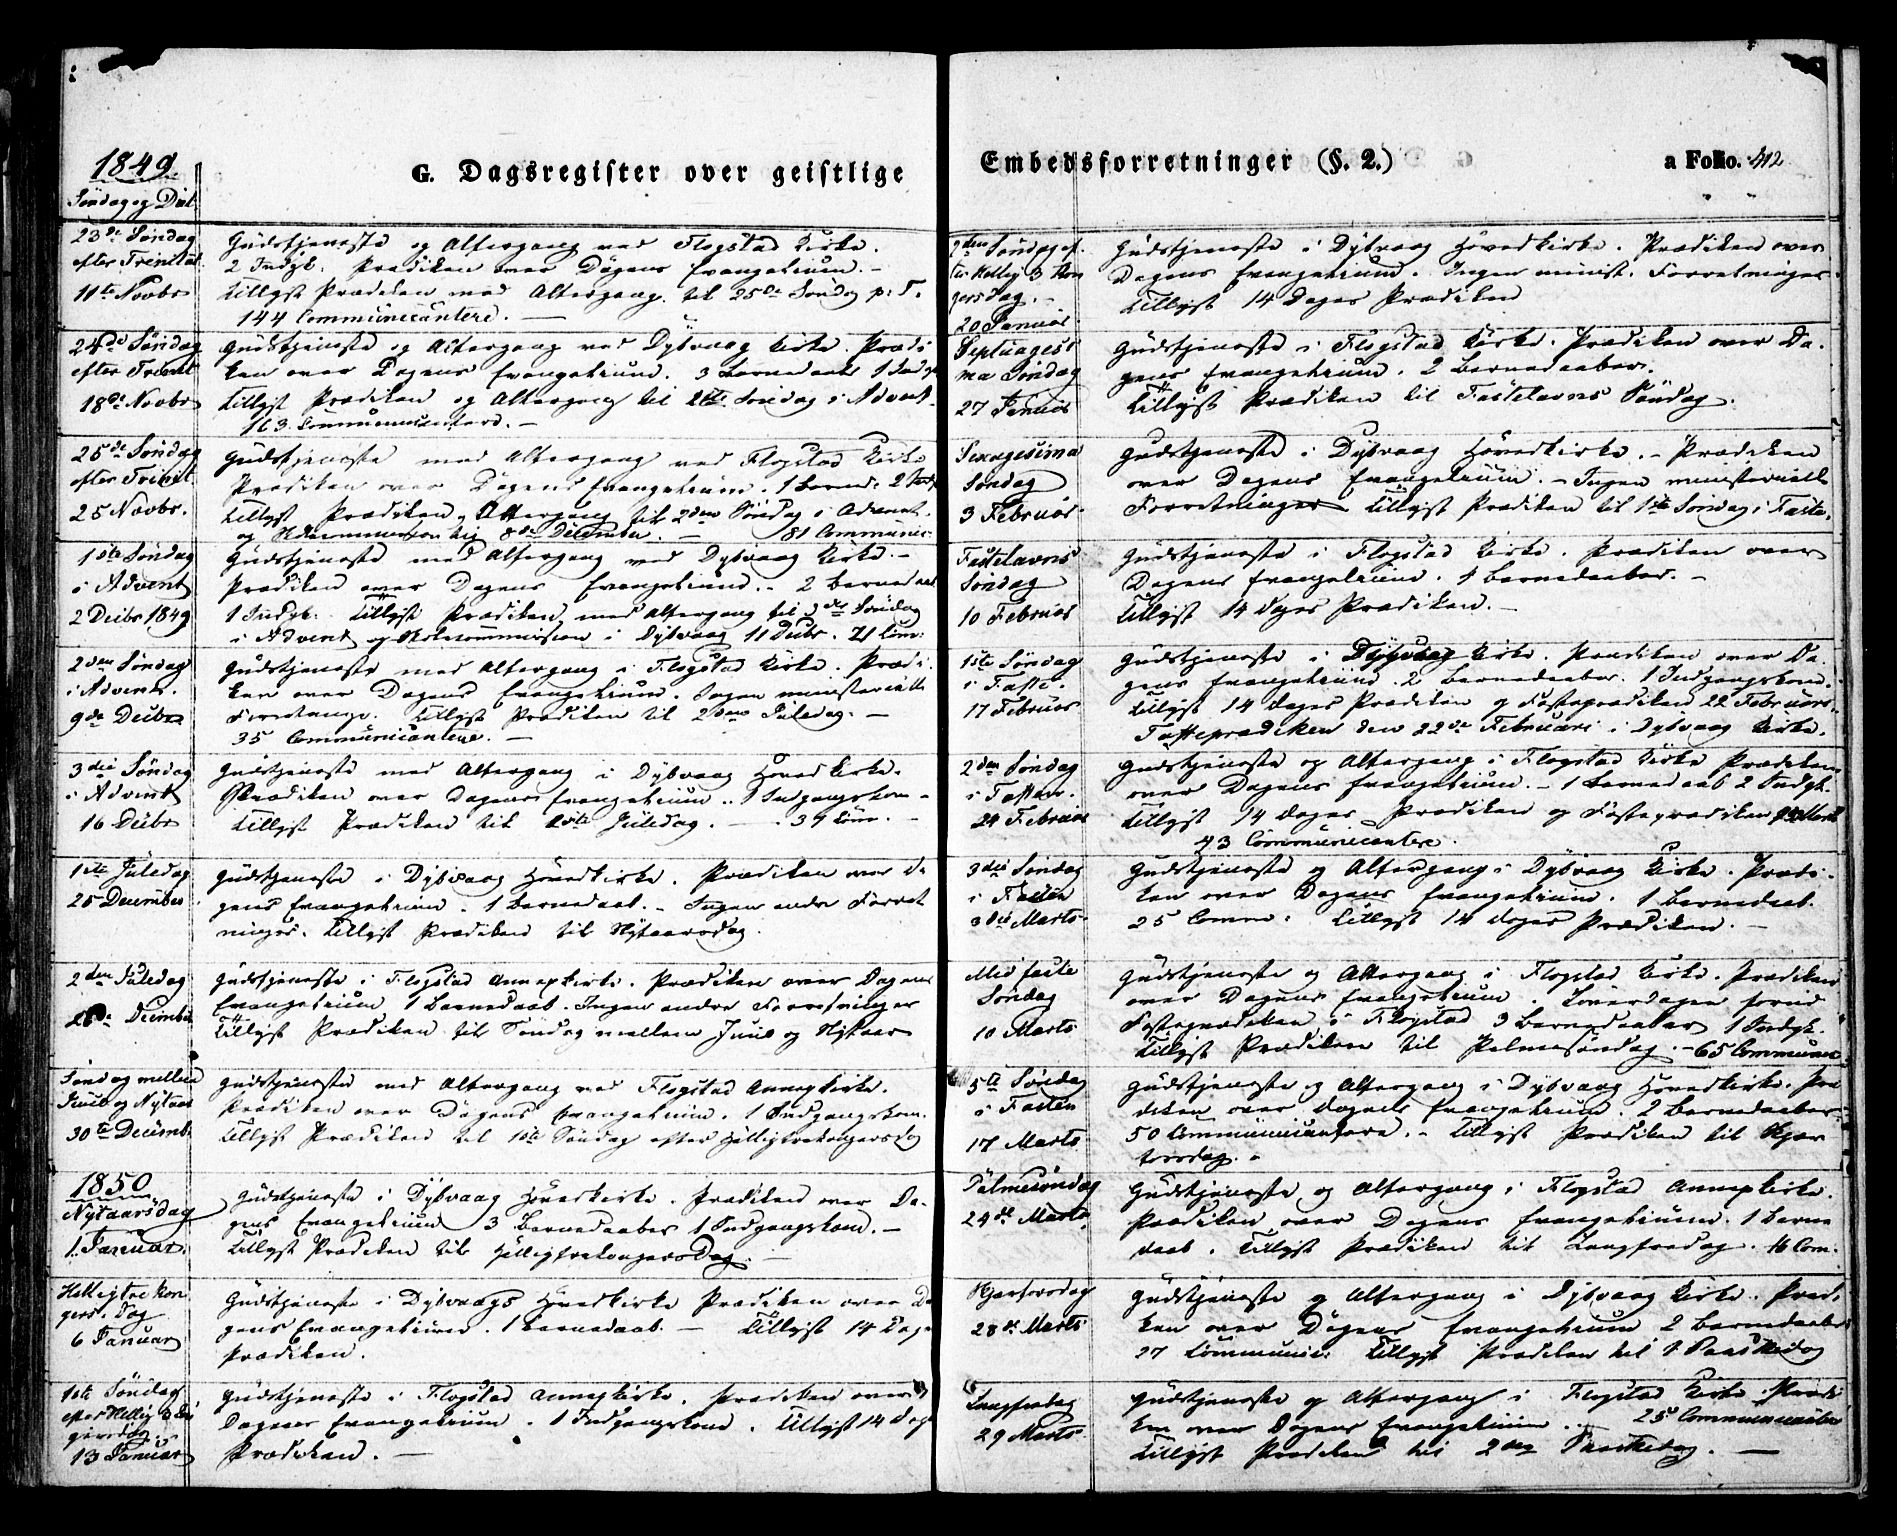 1849.
G. Dagsregister over geistlige
Søndag og Dat.
23de Søndag
efter Trinitat.
11te Novbr
Gudstjeneste og Altergang ved Flogstad Kirke.
2 Indgk. Prædiken over Dagens Evangelium. -
tillyst Prædiken med Altergang til 25de Søndag p. T.
144 Communicantere. -
24de Søndag
efter Trinit
18de Novbr
Gudstjeneste og Altergang ved Dybvaag Kirke. Prædi
ken over Dagens Evangelium. 3 Barnedaab 1 Indgk
tillyst Prædiken og Altergang til 1ste Søndag i Advent.
163 Communicantere. -
25de Søndag
efter Trinit.
25 Novbr.
Gudstjeneste med Altergang ved Flogstad Kirke
Prædiken over Dagens Evangelium. 1 Barned. 2 Indgk
tillyst Prædiken, Altergang til 2den Søndag i Advent.
og Skolecommission 8de December. - 81 Communic.
1ste Søndag
i Advent
2 Decbr 1849
Gudstjeneste med Altergang ved Dybvaag Kirke. -
Prædiken over Dagens Evangelium. - 2 Barnedaab
1 Indgk. tillyst Prædiken med Altergang til 3die Søndag
i Advent og Skolecommission i Dybvaag 11 Decbr. 71 Com:
2den Søndag
i Advent.
9de Decbr
Gudstjeneste med Altergang i Flogstad Kirke. Prædi
ken over Dagens Evangelium. Ingen ministerielle
Forretninge. tillyst Prædiken til 2den Juledag. -
35 Communicantere. -
3die Søndag
i Advent
16 Decbr
Gudstjeneste med Altergang i Dybvaag Hovedkirke.
Prædiken over Dagens Evangelium.. 1 Indgangskon -
tillyst Prædiken til 1ste Juledag. - 39 Com. -
1ste Juledag
25 December
Gudstjeneste i Dybvaag Hovedkirke. Prædiken over Da
gens Evangelium. 1 Barnedaab. - Ingen andre Forret
ninger. tillyst Prædiken til Nytaarsdag.
2den Juledag
26de December
Gudstjeneste i Flogstad Annexkirke. Prædiken over Dagens
Evangelium 1 Barnedaab. Ingen andre Forretninger
tillyst Prædiken til Søndag mellem Juul og Nytaar
Søndag mellem
Juul og Nytaar
30te Decemb.
Gudstjeneste med Altergang ved Flogstad Annexkirke.
Prædiken over Dagens Evangelium. 1 Indgangskon.
tillyst Prædiken til 1ste Søndag efter Helligtrekongersdag
1850
Nytaarsdag
1. Januar.
Gudstjeneste i Dybvaag Hovedkirke. Prædiken over Da-
gens Evangelium 3 Barnedaaber 1 Indgangskon. -
tillyst Prædiken til Helligtrekongersdag. -
Helligtrekon
gers. dag
6 Januar
Gudstjeneste i Dybvaags Hovedkirke Prædiken over Da
gens Evangelium. 1 Barnedaab. - tillyst 14 Dages
Prædiken.
1ste Søndag
efter Hellig 3 Kon
gersdag.
13 Januar
Gudstjeneste i Flogstad Annexkirke. Prædiken over
Dagens Evangelium. 1 Indgangskone. tillyst 14 Dages
Prædiken. -
Embedsforretninger (§. 2.)
a Folio. 412
2den Søndag ef.
ter Hellig 3 Kon
gersdag. -
20 Januar
Gudstjeneste i Dybvaag Hovedkirke. Prædiken over
Dagens Evangelium. Ingen minist. Forretninger
tillyst 14 Dages Prædiken
Septuagesi
ma Søndag
27 Januar
Gudstjeneste i Flogstad Kirke. Prædiken over Da-
gens Evangelium. 2 Barnedaaber.
tillyst Prædiken til Fastelavns Søndag.
Sexagesima
Søndag
3 Februar
Gudstjeneste i Dybvaag Hovedkirke. - Prædiken
over Dagens Evangelium. - Ingen ministerielle
Forretninger tillyst Prædiken til 1ste Søndag i Faste.
Fastelavns
Søndag
10 Februar
Gudstjeneste i Flogstad Kirke. Prædiken over
Dagens Evangelium. 1 Barnedaaber. -
tillyst 14 Dages Prædiken. -
1ste Søndag
i Faste.
17 Februar
Gudstjeneste i Dybvaag Kirke. Prædiken over Da-
gens Evangelium. 2 Barnedaaber. 1 Indgangskon.
tillyst 14 Dages Prædiken og Fasteprædiken 22 Februar.
Fasteprædiken den 22de Februar i Dybvaag Kirke.
2den Søndag
i Fasten.
24 Februar
Gudstjeneste og Altergang i Flogstad Kirke Prædiken
over Dagens Evangelium. - 1 Barnedaab 2 Indgk.
tillyst 14 Dages Prædiken og Fasteprædiken 9 Marts
43 Communicantere.
3die Søndag
i Fasten
3die Marts
Gudstjeneste og Altergang i Dybvaag Kirke. Prædi-
ken over Dagens Evangelium. 1 Barnedaab.
25 Comm. tillyst 14 Dages Prædiken. -
Midfaste
Søndag
10 Marts
Gudstjeneste og Altergang i Flogstad Kirke. Prædiken
over Dagens Evangelium. Løverdagen forud
Fasteprædiken i Flogstad 3 Barnedaaber 1 Indgk.
tillyst Prædiken til Palmesøndag. - 65 Communic
5te Søndag
i Fasten
17 Marts
Gudstjeneste og Altergang i Dybvaag Hovedkirke. Præ
diken over Dagens Evangelium. 2 Barnedaaber
50 Communicantere. - tillyst Prædiken til Skjær
torsdag. -
Palmesøndag
24de Marts
Gudstjeneste og Altergang i Flogstad Annexkirke.
Prædiken over Dagens Evangelium. 1 Barne
daab. tillyst Prædiken til Langfredag. 16 Com.
Skjærtorsdag
28de Marts
Gudstjeneste og Altergang i Dybvaag Kirke. Prædi
ken over Dagens Evangelium 2 Barnedaaber
27 Communic: tillyst Prædiken til 1 Paaskedag
Langfredag
29 Marts
Gudstjeneste og Altergang i Flogstad Kirke. Prædi
ken over Dagens Evangelium. 25 Communicantere
tillyst Prædiken til 2den Paaskedag. -